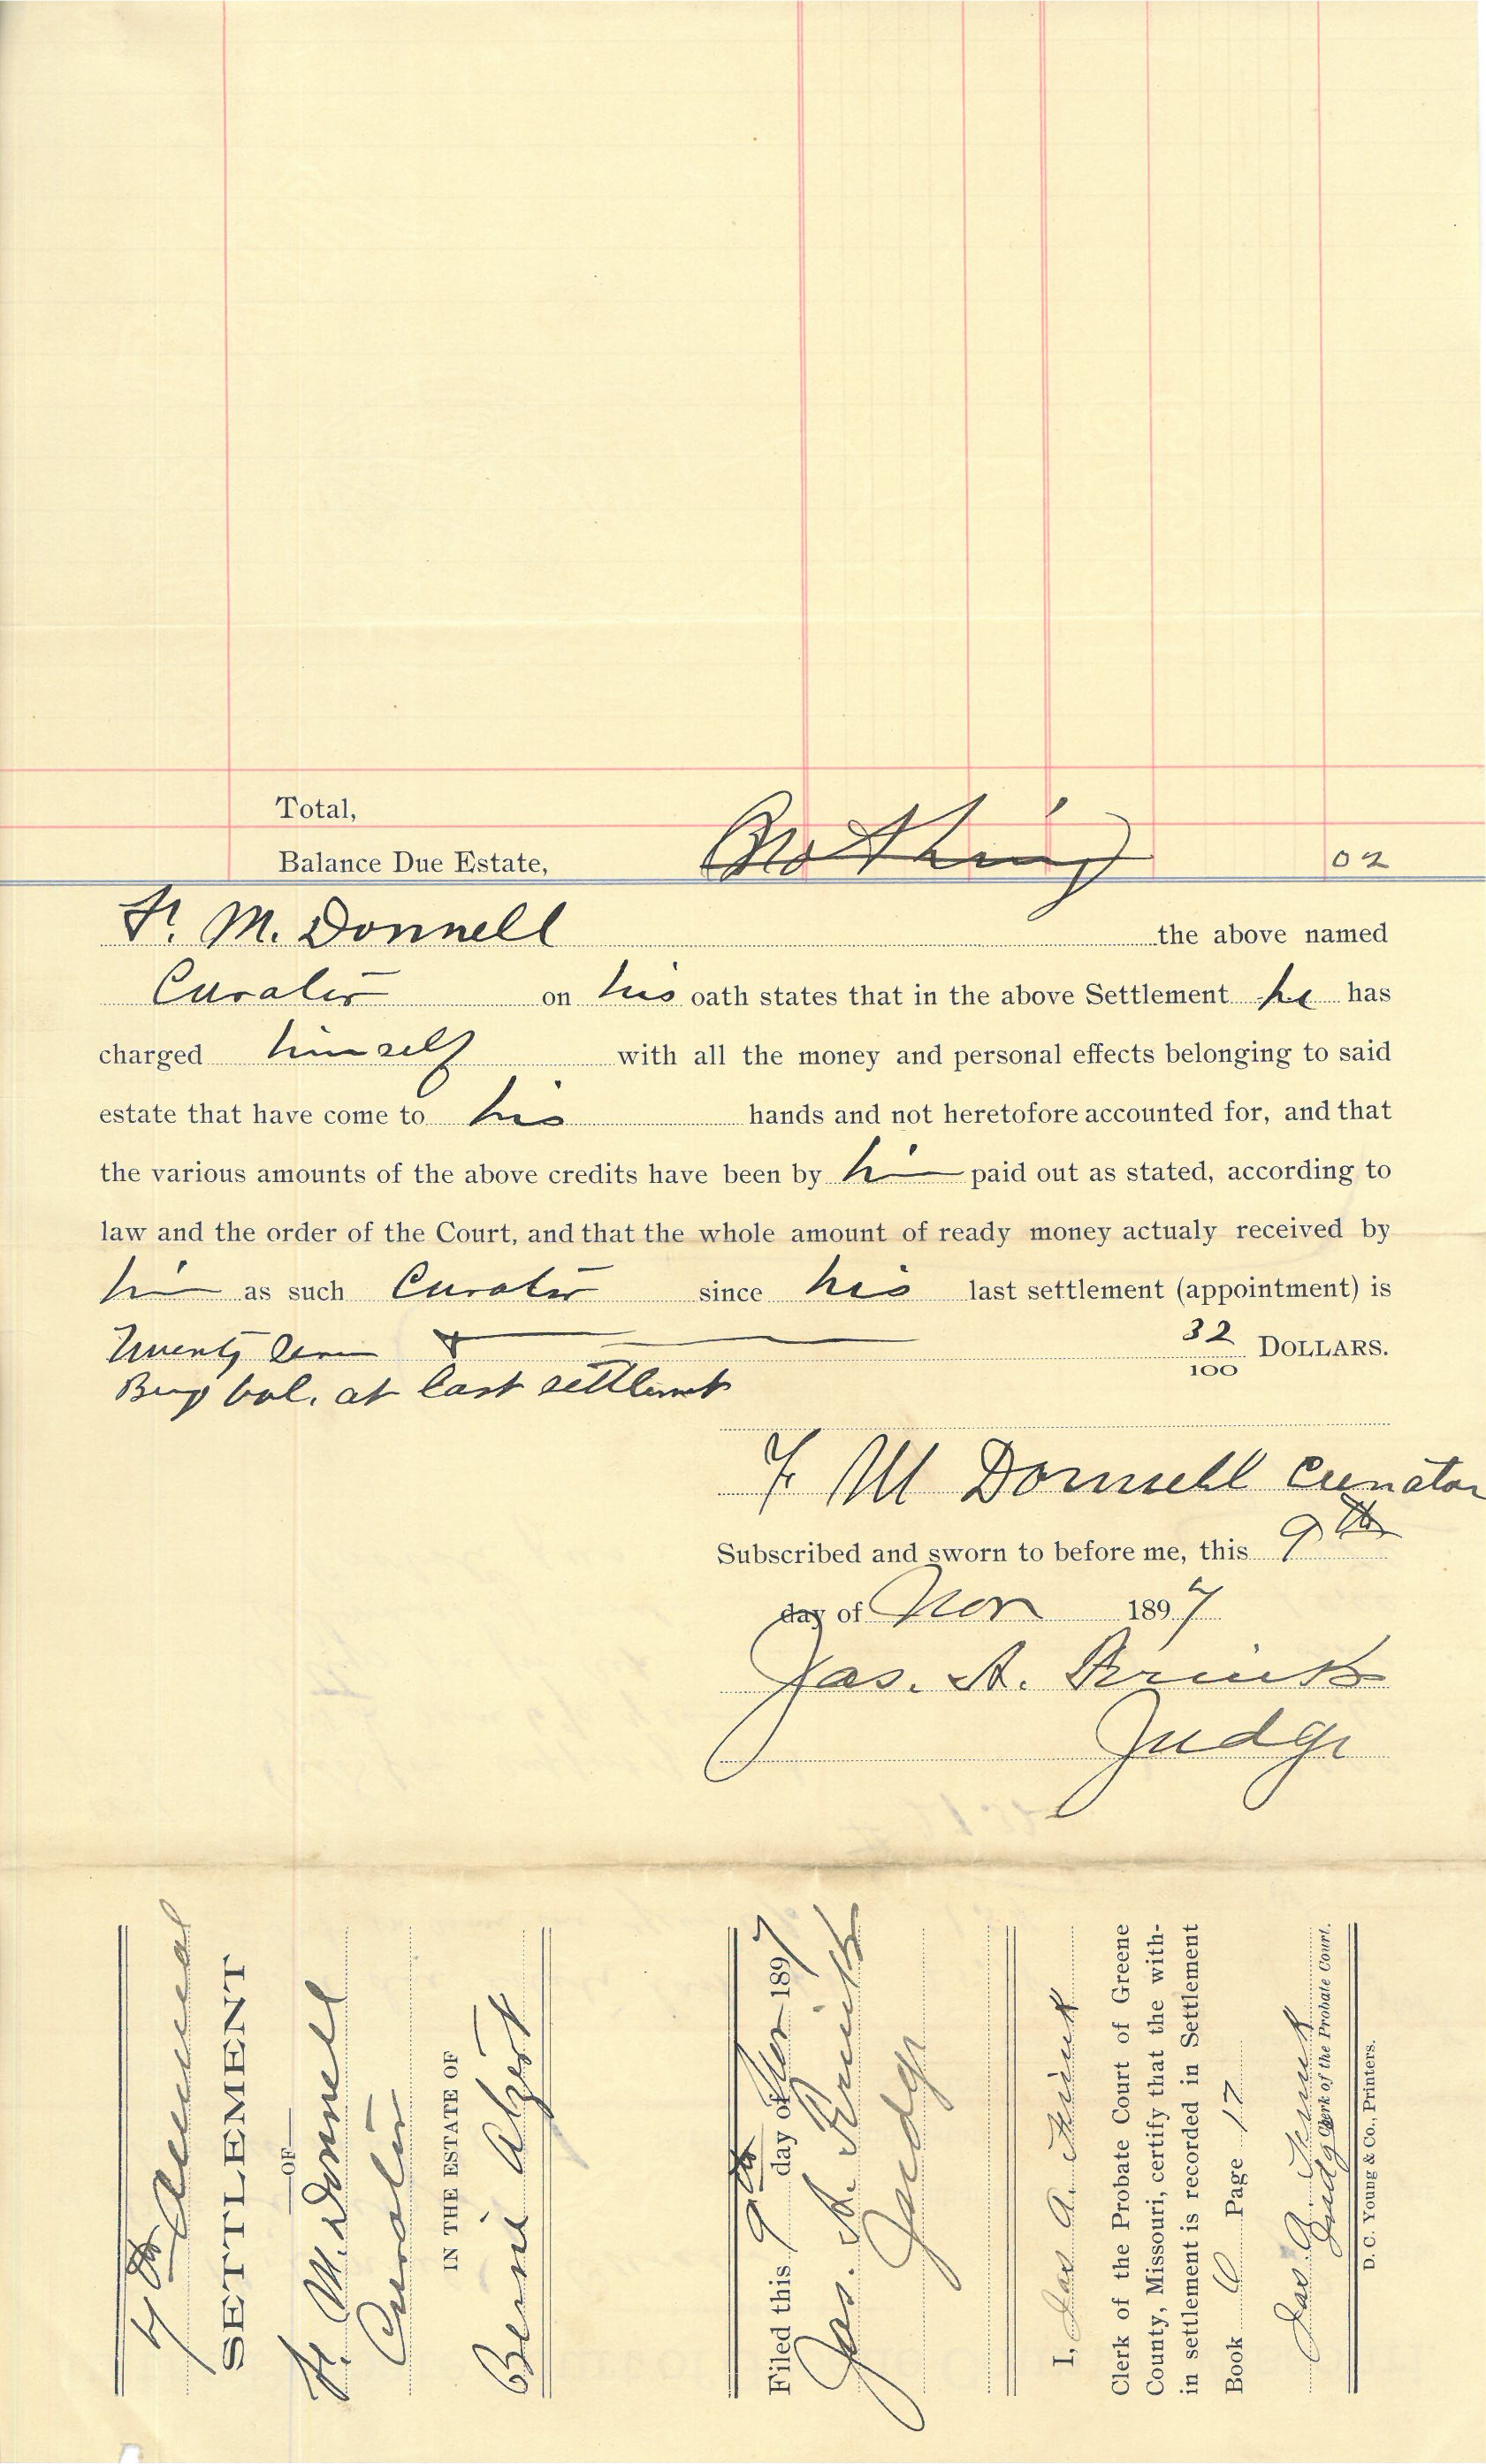 Total,
Nothing
Balance Due Estate, 02
F. M. Donnell the above named
Curator on his oath states that in the above Settlement he has
charged himself with all the money and personal effects belonging to said
estate that have come to his hands and not heretofore accounted for, and that
the various amounts of the above credits have been by him paid out as stated, according to
law and the order of the Court, and that the whole amount of ready money actualy received by
him as such Curator since his last settlement (appointment) is
Twenty & 32/100 DOLLARS.
bal. at last settlemt
F M Donnell Curator
Subscribed and sworn to before me, this 9th
day of Nov 1897
Jas. A. Frink
Judge
4th Annual
SETTLEMENT
OF
F. M. Donnell
Curator
IN THE ESTATE OF
Bernie
Filed this 9th day of Nov 1897
Jas. A. Frink
Judge
I, Jas A. Frink
Clerk of the Probate Court of Greene
County, Missouri, certify that the with-
in settlement is recorded in Settlement
Book Page 17
Jas A. Frink
Judge Clerk of the Probate Court.
D. C. Young & Co., Printers.